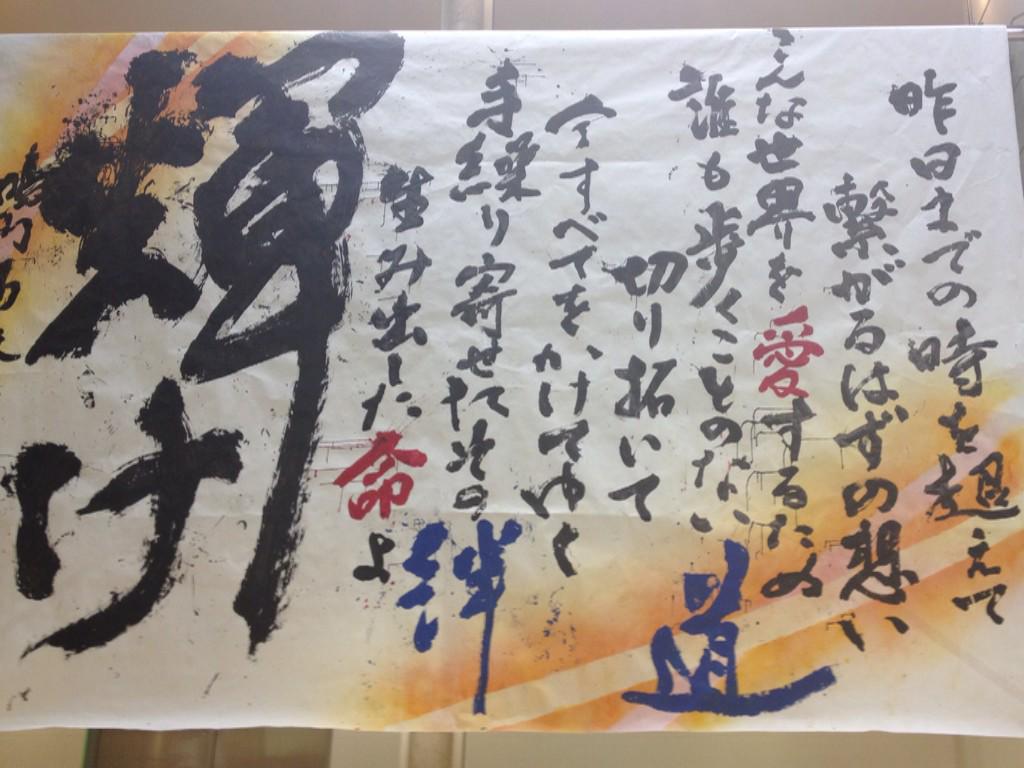 昨日までの時を超えて
繋がるはずの想い
こんな世界を愛するため
誰も歩くことのない道
切り拓いて
今すべてをかけてゆく
手繰り寄せたその絆
生み出した命よ
輝け